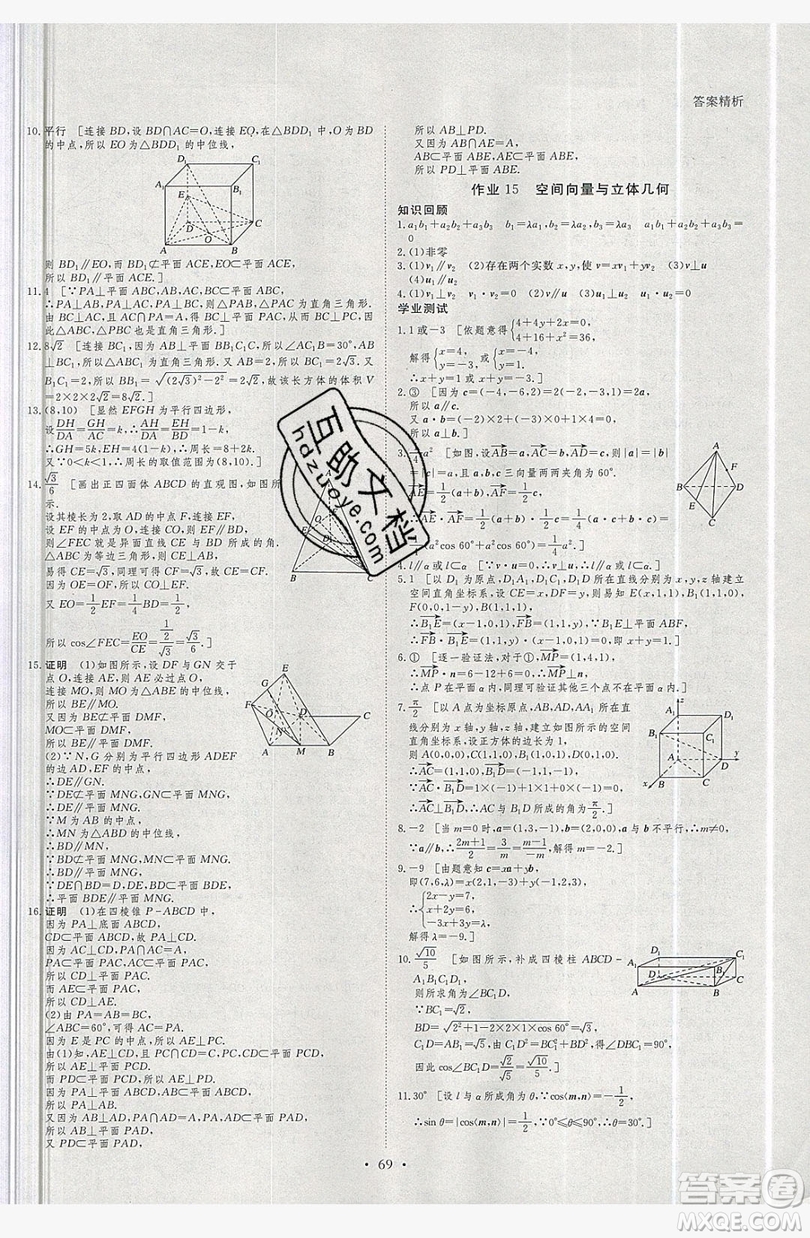 答案精析
10. 平行 [连接 BD,设 BD∩AC=O,连接 EO,在△BDD₁ 中,O 为 BD
的中点,所以 EO 为△BDD₁ 的中位线,
则 BD₁∥EO,而 BD₁⊄平面 ACE,EO⊂平面 ACE,
所以 BD₁∥平面 ACE.]
11. 4 [∵PA⊥平面 ABC,AB,AC,BC⊂平面 ABC,
∴PA⊥AB,PA⊥AC,PA⊥BC,则△PAB,△PAC 为直角三角形.
由 BC⊥AC,且 AC∩PA=A,得 BC⊥平面 PAC,从而 BC⊥PC.
因此△ABC,△PBC 也是直角三角形.]
12. 8√2 [连接 BC₁,因为 AB⊥平面 BB₁C₁C,所以∠AC₁B=30°,AB⊥
BC₁,所以△ABC₁ 为直角三角形.又 AB=2,所以 BC₁=2√3.又
B₁C₁=2,所以 BB₁=√((2√3)²−2²)=2√2,故该长方体的体积 V
=2×2×2√2=8√2.]
13. (8,10) [显然 EFGH 为平行四边形,
设DH/DA=GH/AC=k,∴AH/DA=EH/BD=1−k,
∴GH=5k,EH=4(1−k),∴周长=8+2k.
又∵0<k<1,∴周长的取值范围为(8,10).]
14. √3/6 [画出正四面体 ABCD 的直观图,如图所
示.
设其棱长为 2,取 AD 的中点 F,连接 EF,
设 EF 的中点为 O,连接 CO,则 EF∥BD,
则∠FEC 就是异面直线 CE 与 BD 所成的角.
△ABC 为等边三角形,则 CE⊥AB,
易得 CE=√3,同理可得 CF=√3,
故 CE=CF.因为 OE=OF,所以 CO⊥EF.
又 EO=1/2EF=1/4BD=1/2,
所以 cos∠FEC=EO/CE=(1/2)/√3=√3/6.]
15. 证明 (1)如图所示,设 DF 与 GN 交于
点 O,连接 AE,则 AE 必过点 O,
连接 MO,则 MO 为△ABE 的中位线,
所以 BE∥MO.
又因为 BE⊄平面 DMF,
MO⊂平面 DMF,
所以 BE∥平面 DMF.
(2)∵N,G 分别为平行四边形 ADEF
的边 AD,EF 的中点,
∴DE∥GN.
∵DE⊄平面 MNG,GN⊂平面 MNG,
∴DE∥平面 MNG.
∵M 为 AB 的中点,
∴MN 为△ABD 的中位线,
∴BD∥MN.
∵BD⊄平面 MNG,MN⊂平面 MNG,
∴BD∥平面 MNG.
∵DE∩BD=D,BD,DE⊂平面 BDE,
∴平面 BDE∥平面 MNG.
16. 证明 (1)在四棱锥 P-ABCD 中,
因为 PA⊥底面 ABCD,
CD⊂平面 ABCD,故 PA⊥CD.
因为 AC⊥CD,PA∩AC=A,
PA⊂平面 PAC,AC⊂平面 PAC,
所以 CD⊥平面 PAC.
而 AE⊂平面 PAC,
所以 CD⊥AE.
(2)由 PA=AB=BC,
∠ABC=60°,可得 AC=PA.
因为 E 是 PC 的中点,所以 AE⊥PC.
由(1)知,AE⊥CD,且 PC∩CD=C,
PC⊂平面 PCD,CD⊂平面 PCD,
所以 AE⊥平面 PCD.
而 PD⊂平面 PCD,所以 AE⊥PD.
因为 PA⊥底面 ABCD,
所以 PA⊥AB.
又因为 AB⊥AD 且 PA∩AD=A,
PA⊂平面 PAD,AD⊂平面 PAD,
所以 AB⊥平面 PAD,
又 PD⊂平面 PAD,
所以 AB⊥PD.
又因为 AB∩AE=A,
AB⊂平面 ABE,AE⊂平面 ABE,
所以 PD⊥平面 ABE.
作业 15 空间向量与立体几何
知识回顾
1. a₁b₁+a₂b₂+a₃b₃ b₁=λa₁,b₂=λa₂,b₃=λa₃ a₁b₁+a₂b₂+a₃b₃=
0
2. (1)非零
3. (1)v₁∥v₂ (2)存在两个实数 x,y,使 v=xv₁+yv₂ (3)v⊥u
(4)u₁∥u₂
4. (1)v₁⊥v₂ v₁·v₂=0 (2)v∥u (3)u₁⊥u₂ u₁·u₂=0
学业测试
1. 1 或−3 [依题意得{4+4y+2x=0, 4+16+x²=36,
解得{x=4, y=−3或{x=−4, y=1.
∴x+y=1 或 x+y=−3.]
2. ③ [因为 c=(−4,−6,2)=2(−2,−3,1)=2a,
所以 a∥c.
又 a·b=(−2)×2+(−3)×0+1×4=0,
所以 a⊥b.]
[如图,设AB=a,AC=b,AD=c,则|a|=|b|=
|c|=a,且 a,b,c 三向量两两夹角为 60°.
4. l∥α 或 l⊂α [∵u·v=0,∴u⊥v,∴l∥α 或 l⊂α.]
5. 1 [以 D₁ 为原点,D₁A₁,D₁C₁,D₁D 所在直线分别为 x 轴,y 轴,z 轴建立
空间直角坐标系,设 CE=x,DF=y,则易知 E(x,1,1),B₁(1,1,0),
F(0,0,1−y),B(1,1,1),
∴B₁E=(x−1,0,1),FB=(1,1,y),∵B₁E⊥平面 ABF,
∴FB·B₁E=(1,1,y)·(x−1,0,1)=0,即 x+y=1.]
6. ① [逐一验证法,对于①,MP=(1,4,1),
∴MP·n=6−12+6=0,∴MP⊥n,
∴点 P 在平面 α 内,同理可验证其他三个点不在平面 α 内.]
7. π/2 [以 A 点为坐标原点,AB,AD,AA₁ 所在直
线分别为 x 轴,y 轴,z 轴,建立如图所示的空间
直角坐标系,设正方体的边长为 1,
则 A(0,0,0),C(1,1,0),B₁(1,0,1),D(0,1,0).
∴AC=(1,1,0),B₁D=(−1,1,−1),
∵AC·B₁D=1×(−1)+1×1+0×(−1)=0,
∴AC⊥B₁D,∴AC 与 B₁D 所成的角为π/2.]
8. −2 [当 m=0 时,a=(1,3,−1),b=(2,0,0),a 与 b 不平行,∴m≠0,
∵a∥b,∴(2m+1)/2=3/m=(m−1)/−m,解得 m=−2.]
9. −9 [由题意知 c=xa+yb,
即(7,6,λ)=x(2,1,−3)+y(−1,2,3),
∴{2x−y=7, x+2y=6, −3x+3y=λ,
解得 λ=−9.]
10. √10/5 [如图所示,补成四棱柱 ABCD−
A₁B₁C₁D₁,
则所求角为∠BC₁D,
∵BC₁=√2,
BD=√(2²+1−2×2×1×cos 60°)=√3,
C₁D=AB₁=√5,易得 C₁D²=BD²+BC₁²,即∠DBC₁=90°,
因此 cos∠BC₁D=√2/√5=√10/5.]
11. 30° [设 l 与 α 所成的角为 θ,∵cos⟨m,n⟩=−1/2,
∴sin θ=|cos⟨m,n⟩|=1/2,∵0°≤θ≤90°,∴θ=30°.]
· 69 ·
互助文档
hdzuoye.com
答案圈
MXQE.COM